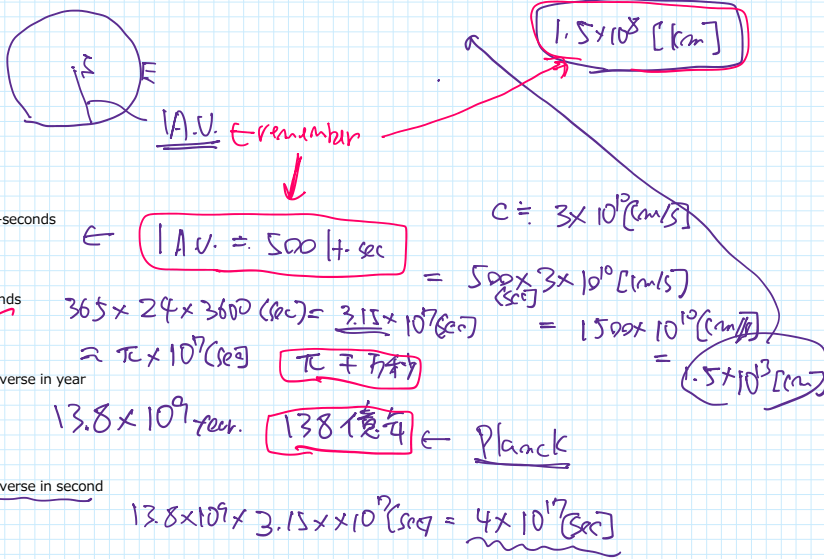 1.5×10⁸ [km]
S
E
1A.U. ← remember
-seconds
C ≒ 3×10¹⁰ [cm/s]
← 1 A.U. ≒ 500 lt. sec
= 500 × 3×10¹⁰ [cm/s]
[sec]
nds
365 × 24 × 3600 (sec) = 3.15 × 10⁷ [sec]
= 1500 × 10¹⁰ [cm/s]
≈ π × 10⁷ [sec]
π 千万秒
= 1.5×10¹³ [cm]
verse in year
13.8 × 10⁹ year.
138億年 ← Planck
verse in second
13.8×10⁹ × 3.15×× 10⁷ [sec] = 4 × 10¹⁷ [sec]